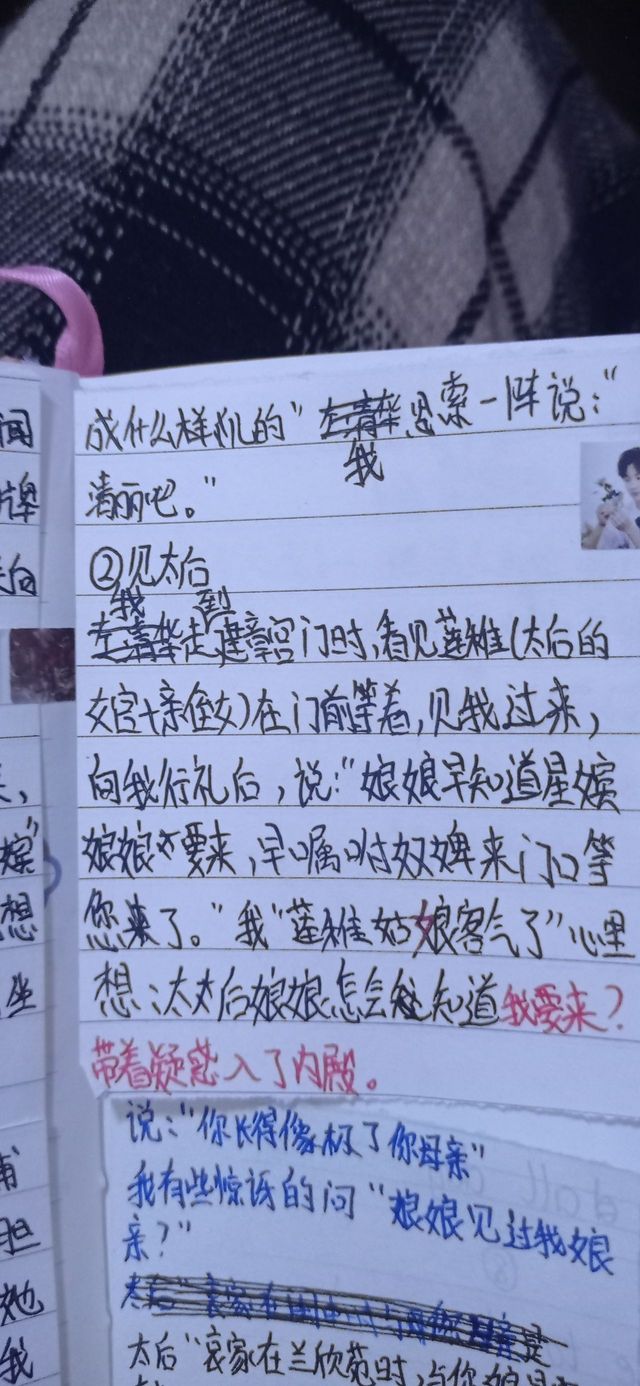 成什么样机的" 左青华思索一阵说:"
我
清丽吧。"
②见太后
我 到
左青华走建章宫门时,看见莲稚(太后的
女官+亲侄女)在门前等着,见我过来,
向我行礼后,说:"娘娘早知道星嫔
娘娘要来,早嘱咐奴婢来门口等
您来了。"我"莲稚姑娘客气了"心里
想:太后娘娘怎会知道我要来?
带着疑惑入了内殿。
说:"你长得像极了你母亲"
我有些惊讶的问"娘娘见过我娘
亲?"
太后"哀家在
太后"哀家在兰欣苑时,与你娘
闻
牌
向
嫔"
想
坐
胆
她
我